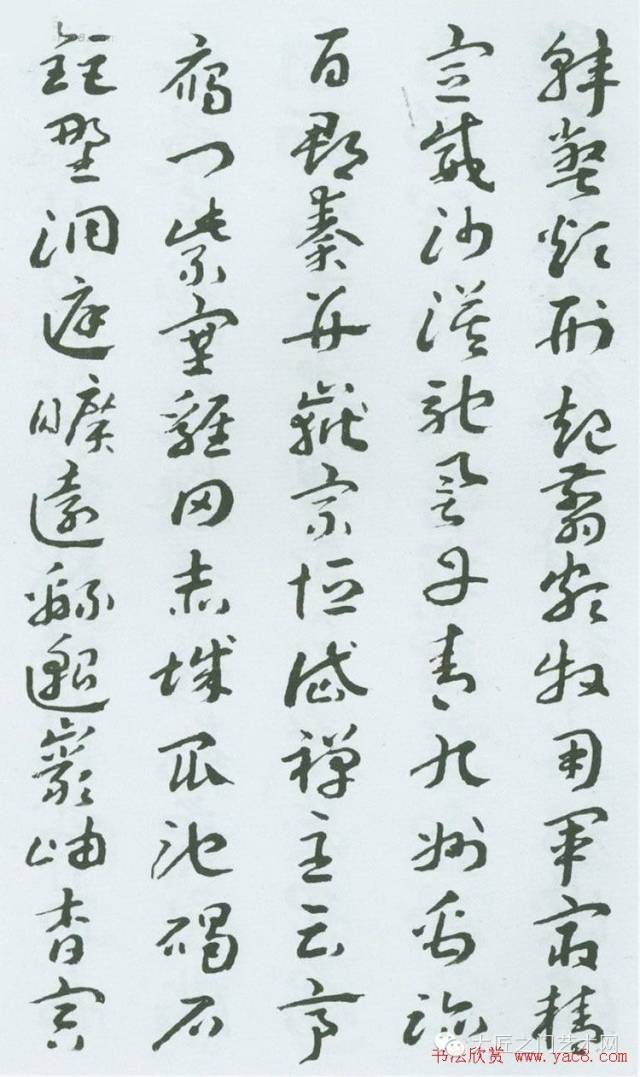 韓弊煩刑起翦頗牧用軍最精
宣威沙漠馳譽丹青九州禹跡
百郡秦并嶽宗恒岱禪主云亭
鴈門紫塞雞田赤城昆池碣石
鉅野洞庭曠遠緜邈巖岫杳冥
大匠之门艺术网
书法欣赏 www.yac8.com